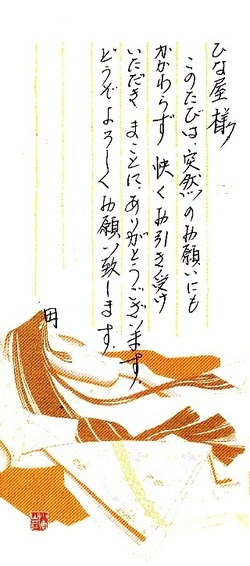 ひな屋 様
このたびは、突然のお願いにも
かかわらず 快くお引き受け
いただき まことに、ありがとうございます。
どうぞよろしくお願い致します。
田